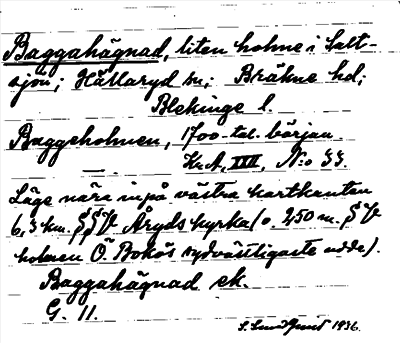 Baggahägnad, liten holme i Salt-
sjön; Hällaryd sn; Bräkne hd;
Blekinge l.
Baggeholmen, 1700-tal. början
Kr.A, XXII, N:o 33
Läge nära inpå västra kartkanten
6,3 km. SSV Aryds kyrka (o. 250 m. SV
holmen Ö. Bokös sydvästligaste udde).
Baggahägnad ek.
G. 11.
1936.